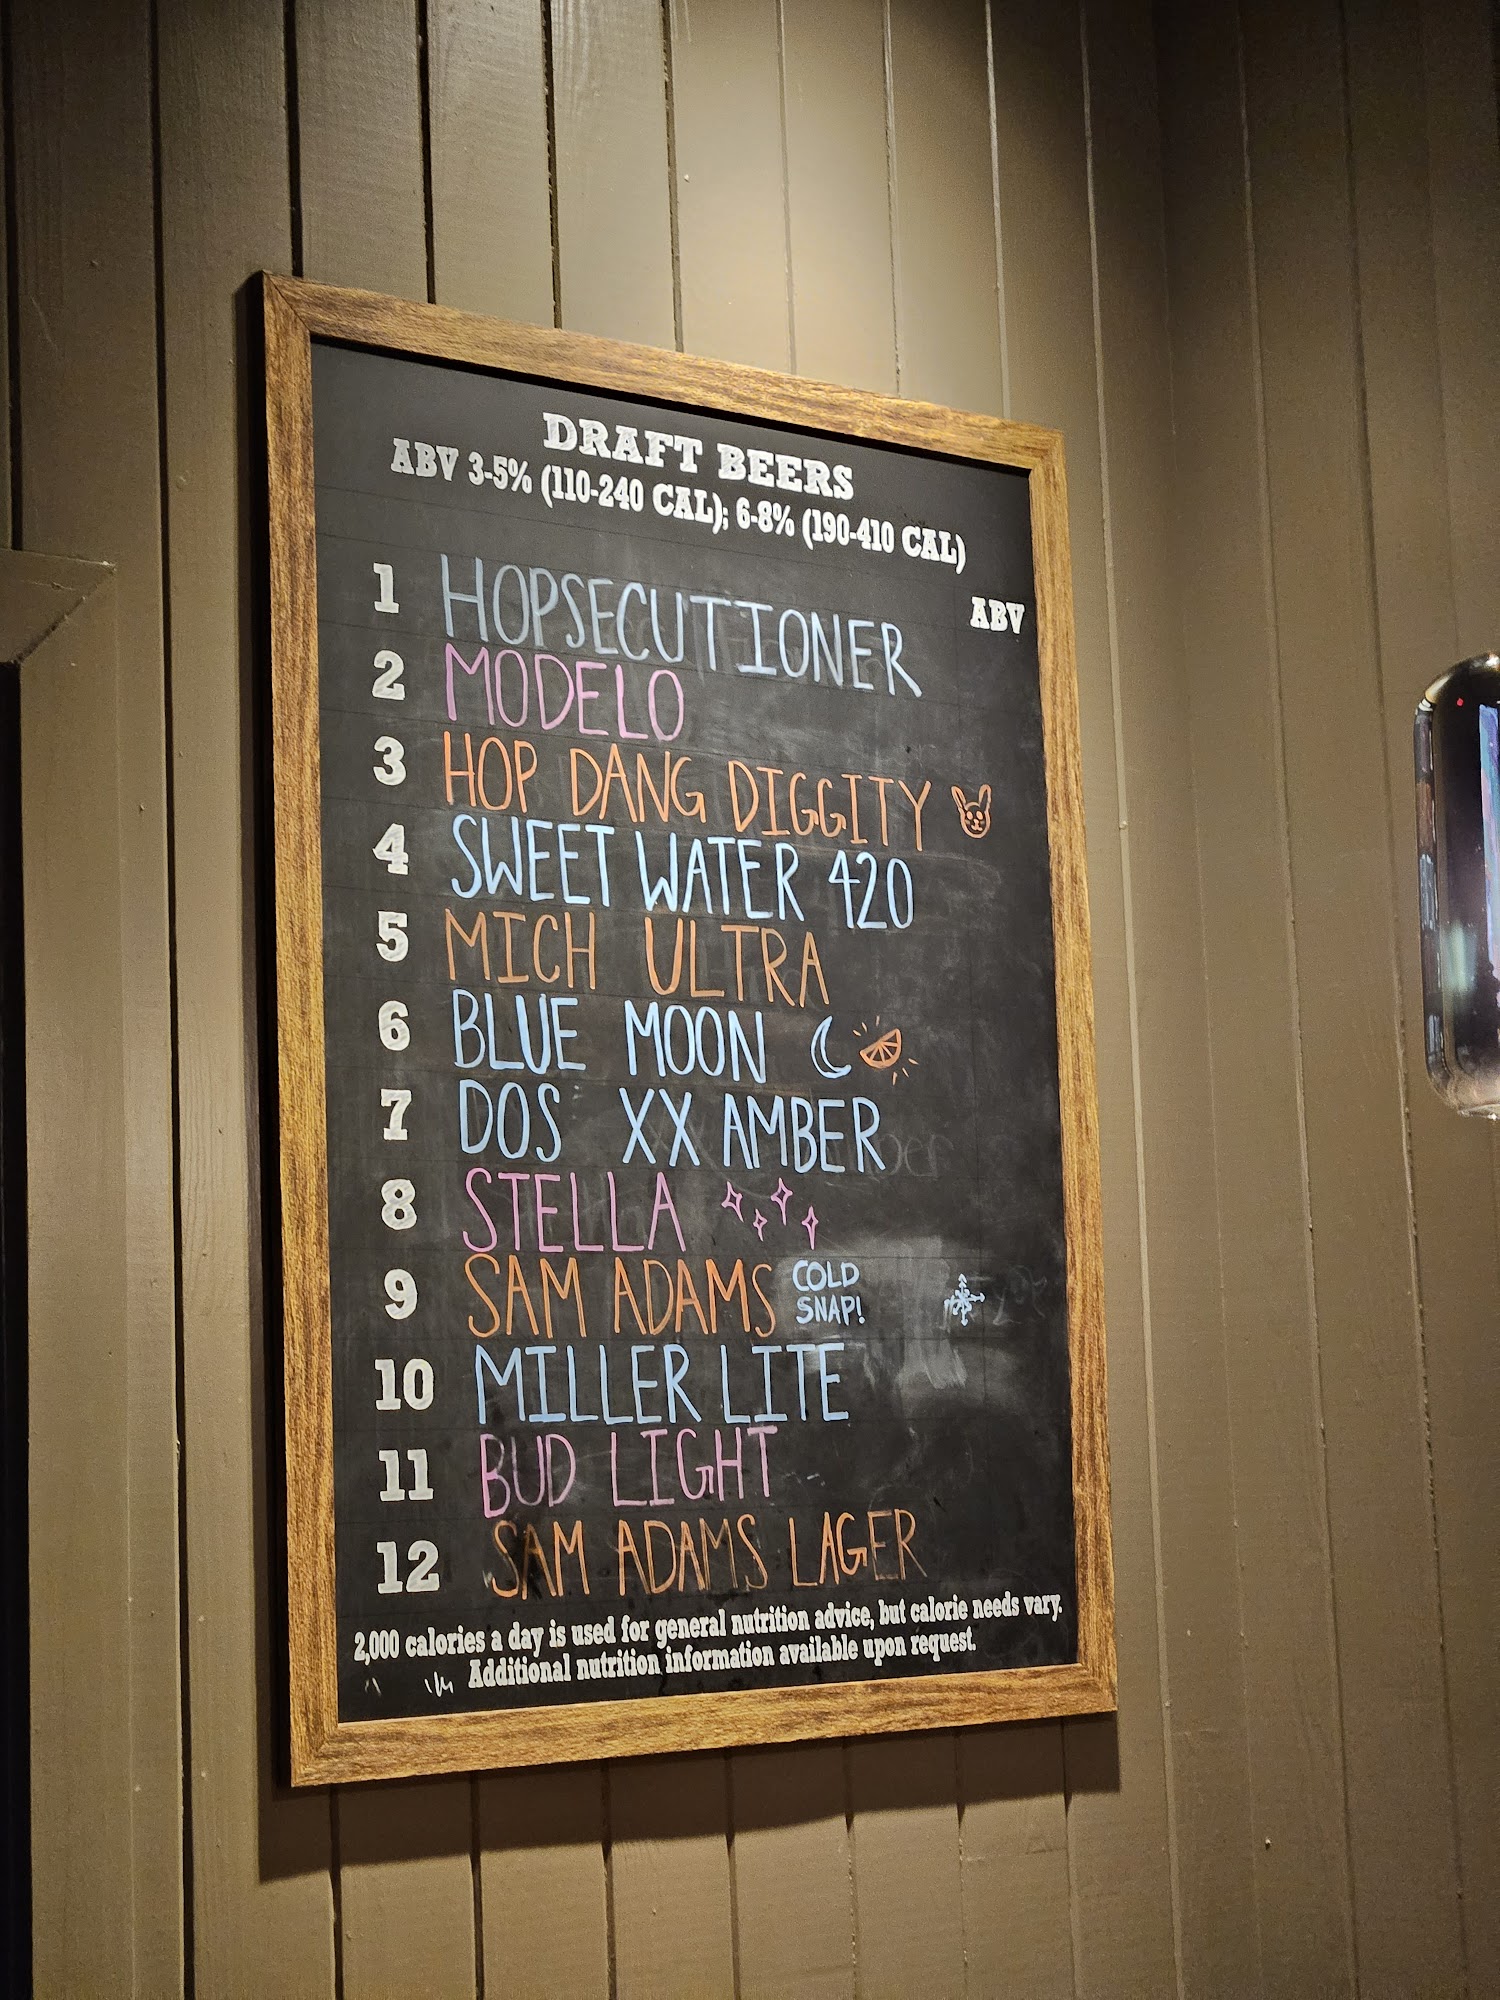 DRAFT BEERS
ABV 3-5% (110-240 CAL); 6-8% (190-410 CAL)
ABV
1 HOPSECUTIONER
2 MODELO
3 HOP DANG DIGGITY
4 SWEET WATER 420
5 MICH ULTRA
6 BLUE MOON
7 DOS XX AMBER
8 STELLA
9 SAM ADAMS COLD SNAP!
10 MILLER LITE
11 BUD LIGHT
12 SAM ADAMS LAGER
2,000 calories a day is used for general nutrition advice, but calorie needs vary.
Additional nutrition information available upon request.